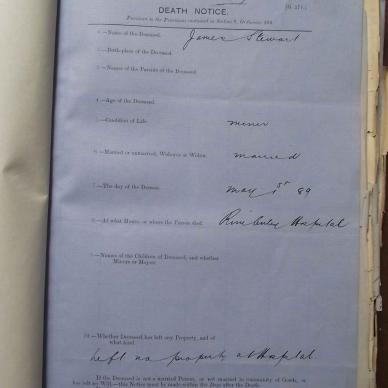 DEATH NOTICE.
Pursuant to the Provisions contained in Section 9, Ordinance 104.
1.—Name of the Deceased. James Stewart
2.—Birth-place of the Deceased.
3.—Names of the Parents of the Deceased.
4.—Age of the Deceased.
5.—Condition of Life. miner
6.—Married or unmarried, Widower or Widow. married
7.—The day of the Decease. May 1st 89
8.—At what House, or where the Person died. Kimberley Hospital
9.—Names of the Children of Deceased, and whether
Minors or Majors.
10.—Whether Deceased has left any Property, and of
what kind.
Left no property at Hospital.
If the Deceased is not a married Person, or not married in community of Goods, or
has left no Will,—this Notice must be made within Ten Days after the Death.